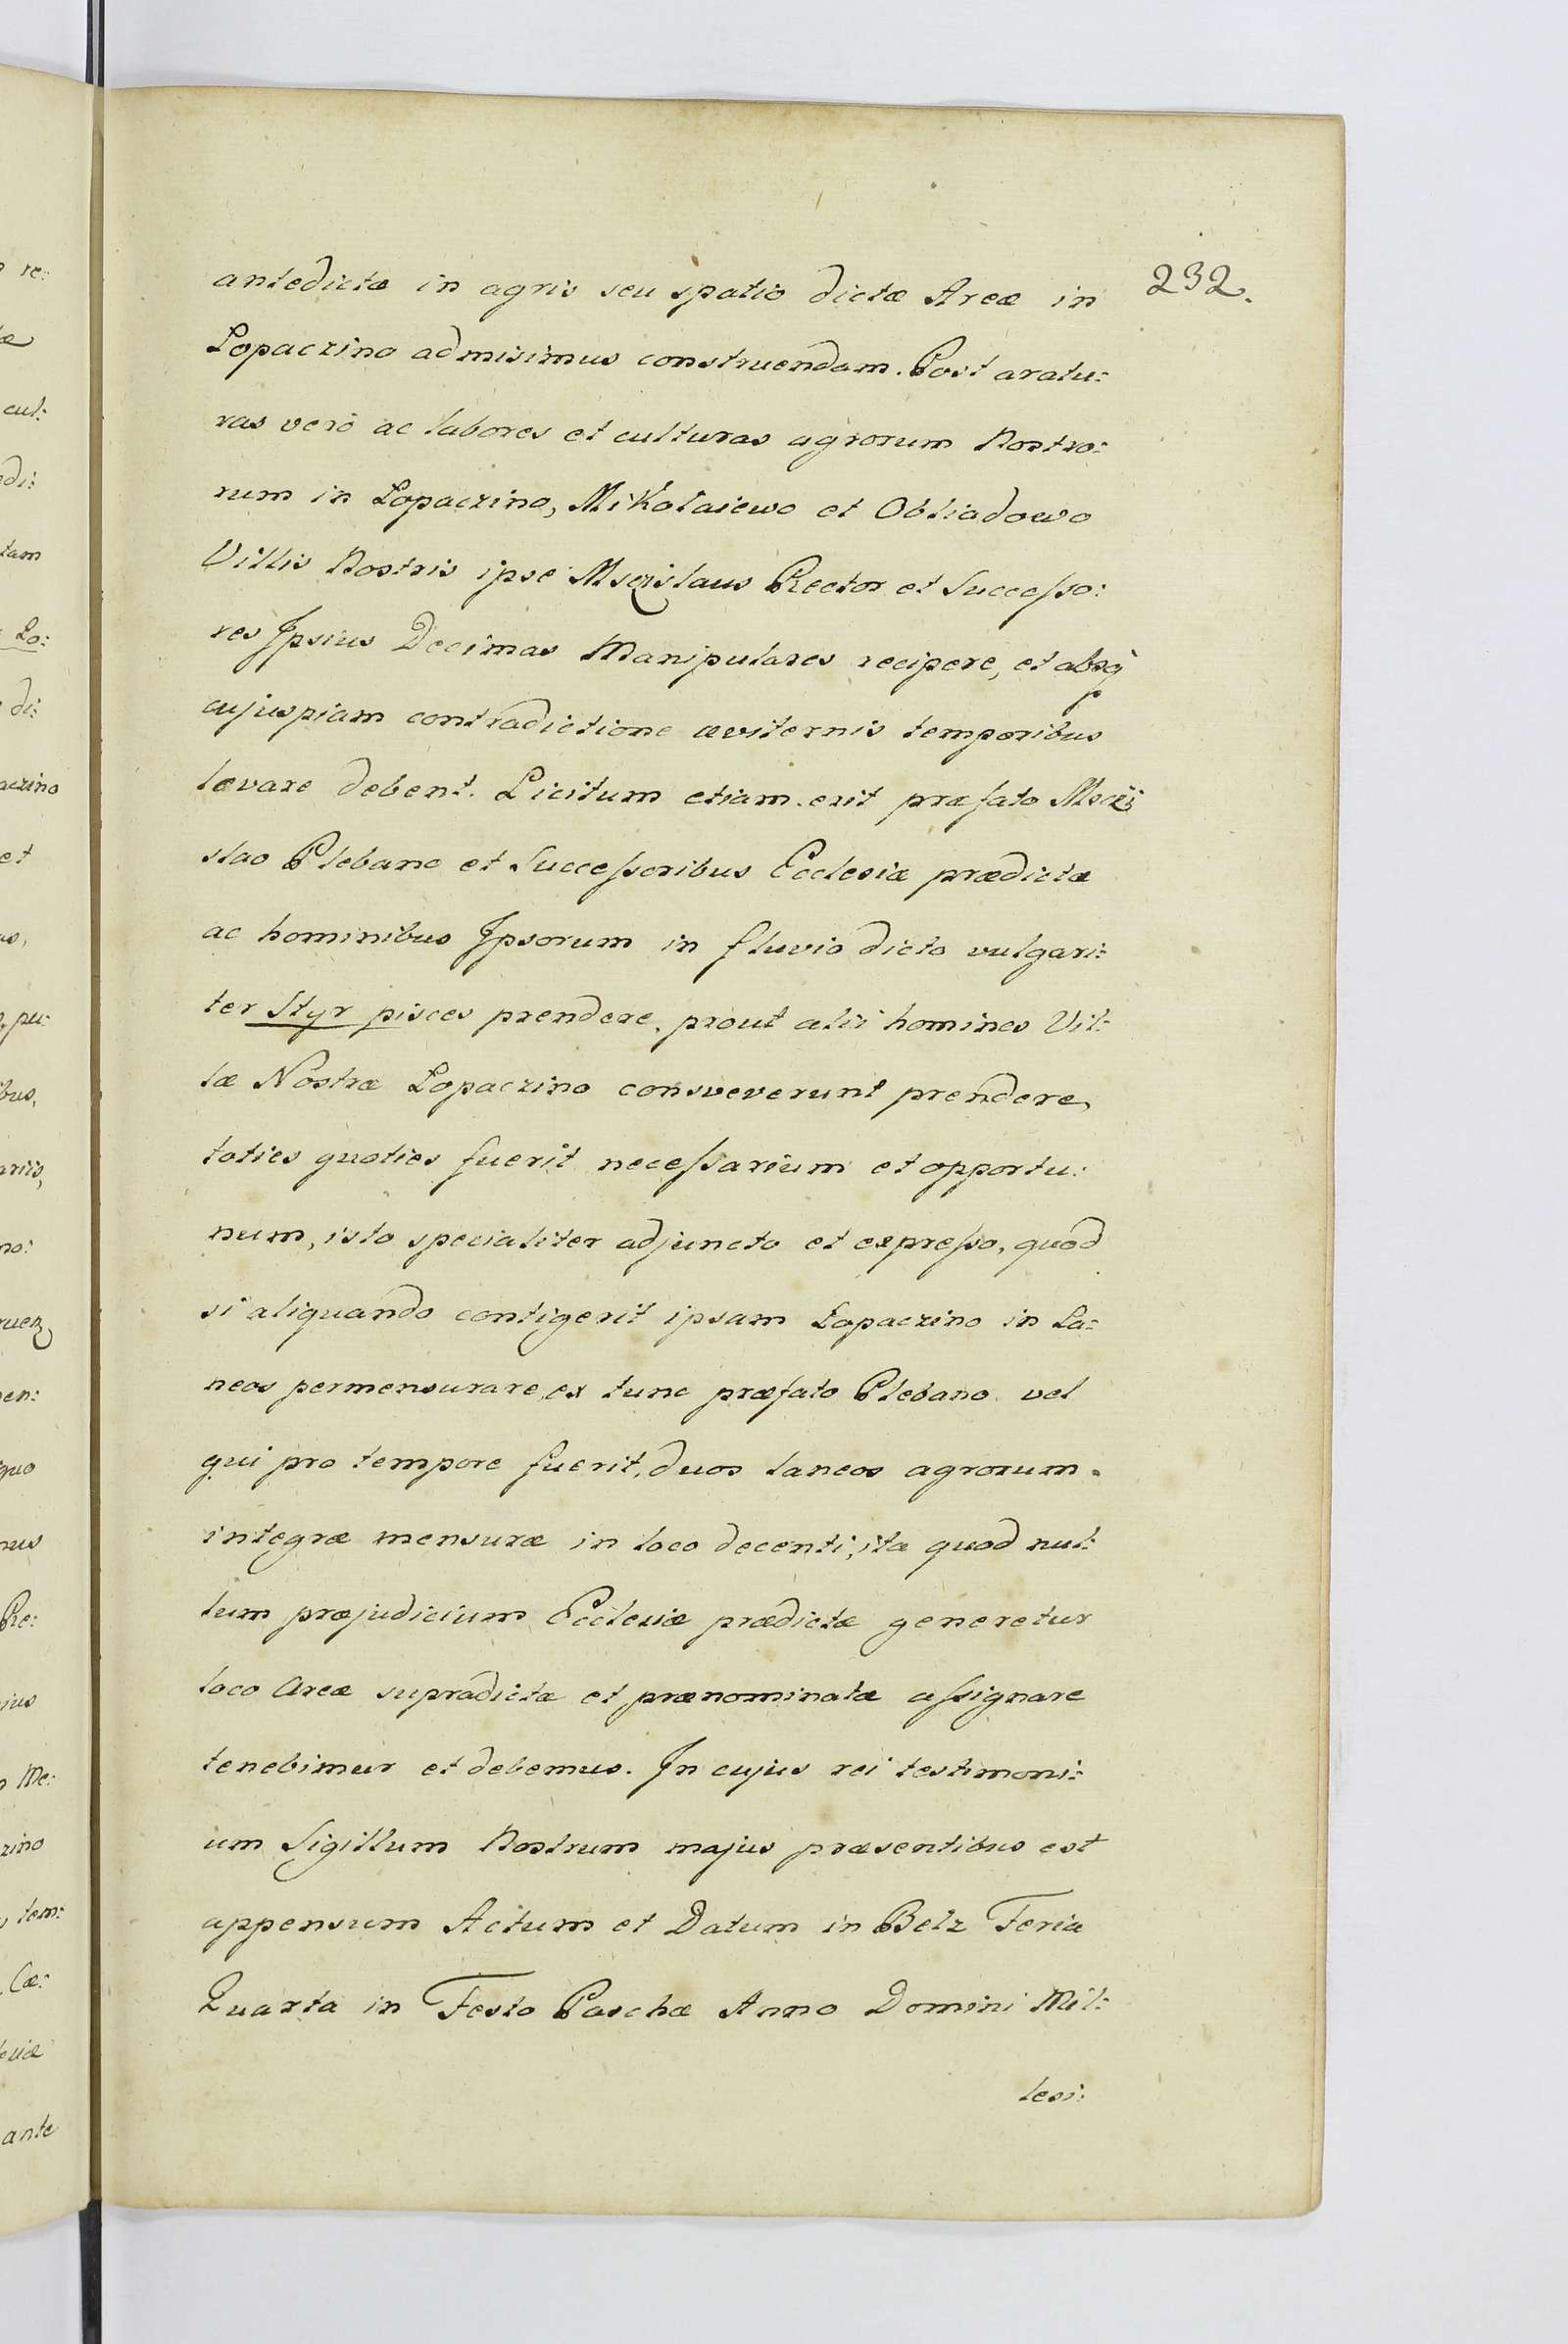 232.
antedictæ in agris seu spatio dictæ Areæ in
Lopaczino admisimus construendam. Post aratu:
ras verò ac labores et culturas agrorum Nostro:
rum in Lopaczino, Mikołaiewo et Obliadowo
Villis Nostris ipse Msczislaus Rector et Successo:
res Ipsius Decimas Manipulares recipere, et absq̀
cujuspiam contradictione æviternis temporibus
levare debent. Licitum etiam erit præfato Msczi
slao Plebano et Successoribus Ecclesiæ prædictæ
ac hominibus Ipsorum in fluvio dicto vulgari:
ter Styr pisces prendere, prout alii homines Vil:
læ Nostræ Lopaczino consveverunt prendere,
toties quoties fuerit necessarium et opportu:
num, isto specialiter adjuncto et expresso, quod
si aliquando contigerit ipsam Lopaczino in La:
neos permensurare, ex tunc præfato Plebano vel
qui pro tempore fuerit, duos laneos agrorum
integræ mensuræ in loco decenti, ita quod nul:
lum præjudicium Ecclesiæ prædictæ generetur
loco Areæ supradictæ et prænominatæ assignare
tenebimur et debemus. In cujus rei testimoni:
um Sigillum Nostrum majus præsentibus est
appensum Actum et Datum in Belz Feria
Quarta in Festo Paschæ Anno Domini Mil:
lesi:
re:
cul:
di:
tam
Lo:
di:
aczino
et
us,
pu:
ibus,
ariis,
no:
ruen
en:
quo
nus
Re:
ius
Me:
zino
tem:
Cæ:
ante